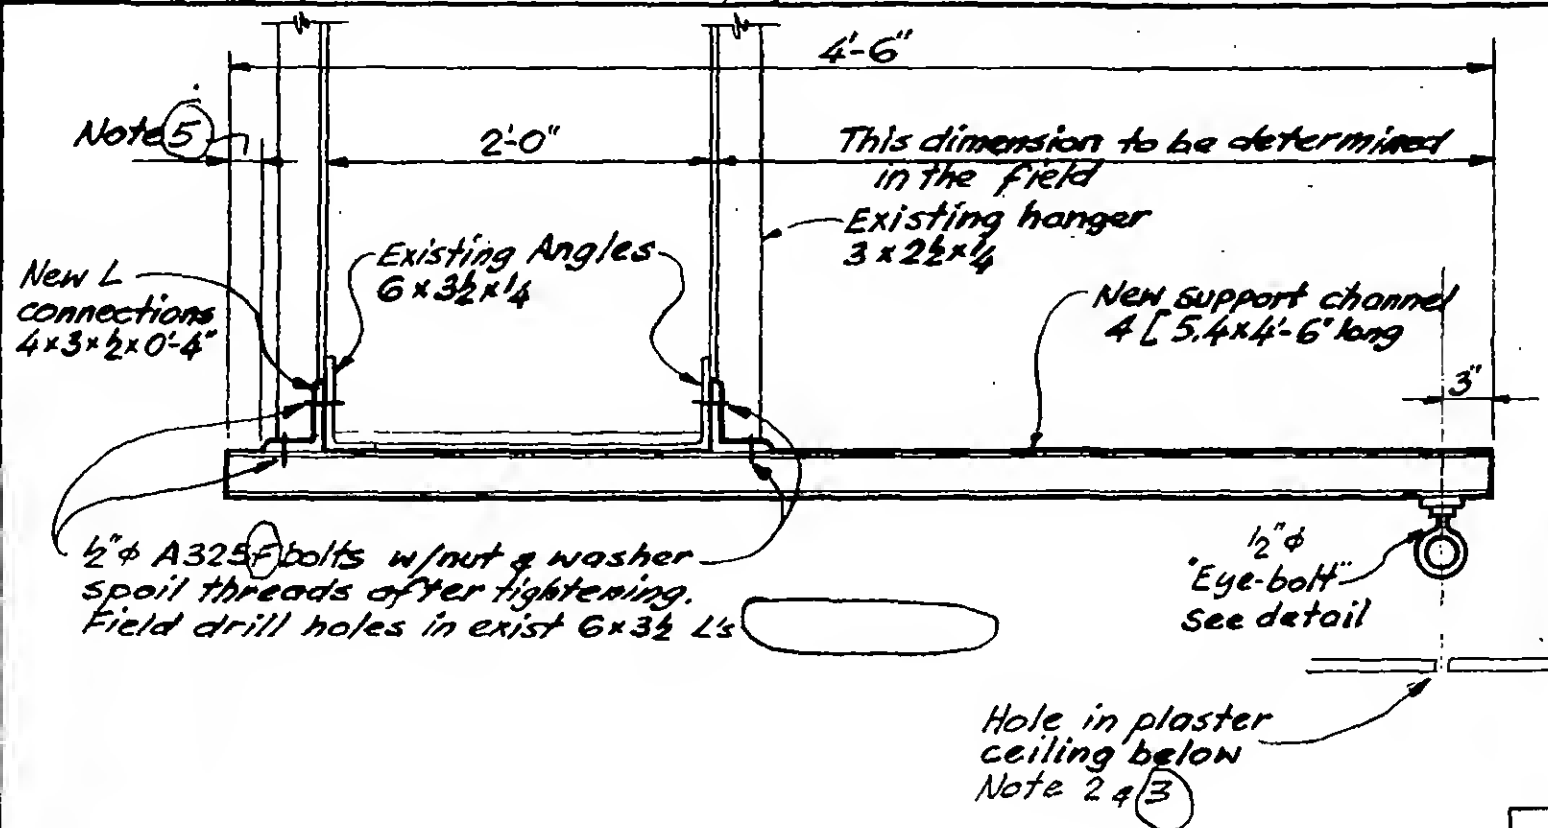 4'-6"
Note 5
2'-0"
This dimension to be determined
in the field
Existing hanger
3 x 2½ x ¼
Existing Angles
6 x 3½ x ¼
New L
connections
4 x 3 x ½ x 0'-4"
New support channel
4 [ 5.4 x 4'-6" long
3"
½"φ A325F bolts w/nut & washer
spoil threads after tightening.
Field drill holes in exist 6x3½ L's
½"φ
"Eye-bolt"
see detail
Hole in plaster
ceiling below
Note 2 & 3